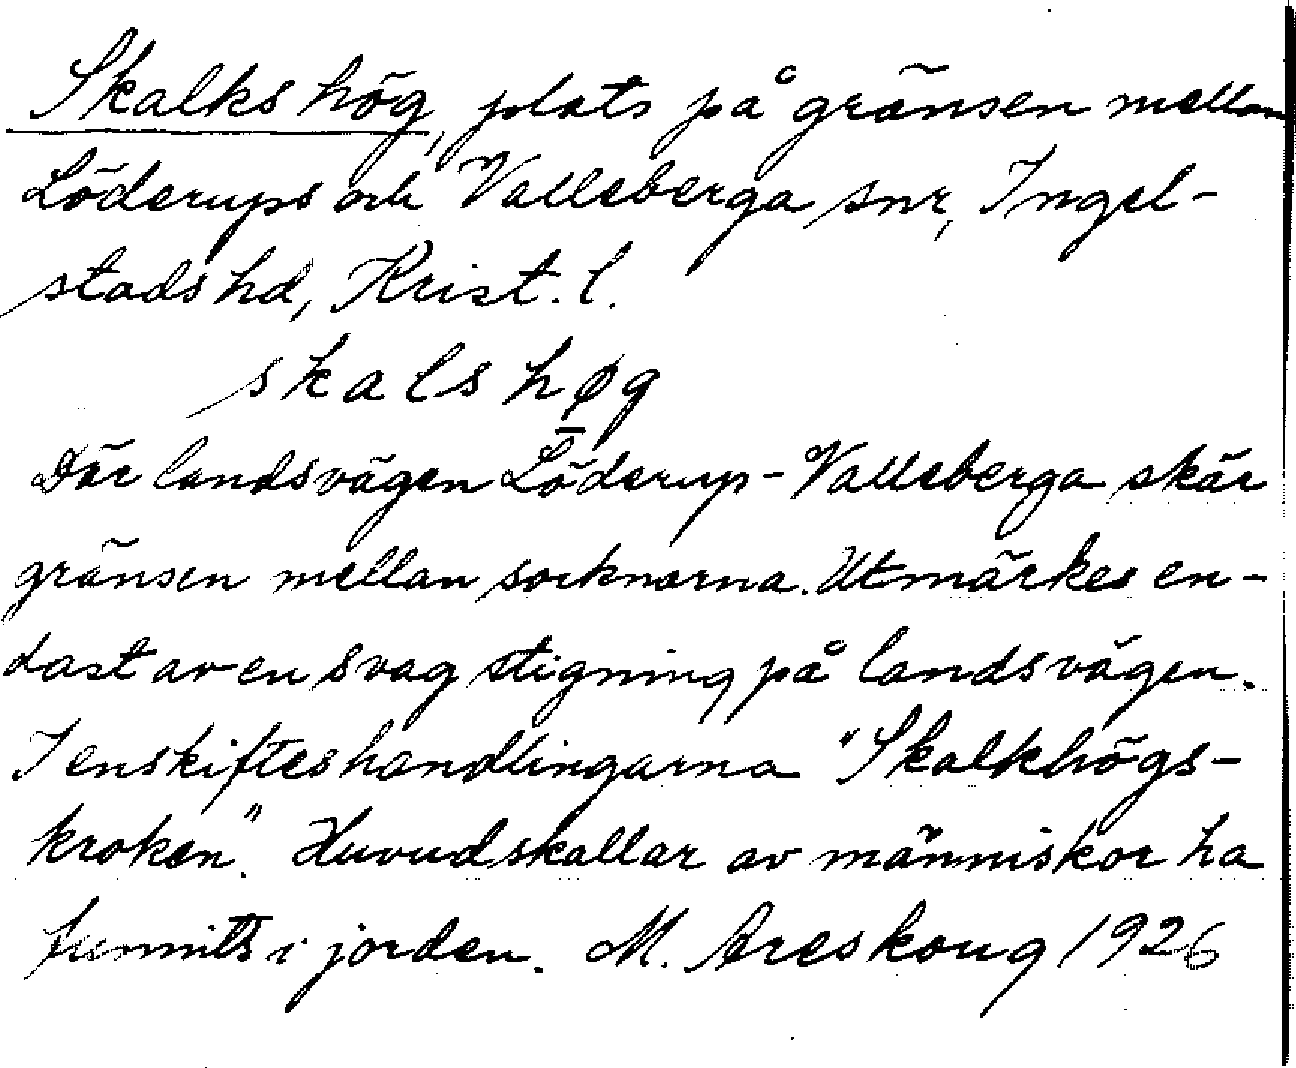 Skalks hög, plats på gränsen mellan
Löderups och Valleberga snr, Ingel-
stads hd, Krist. l.
skals hø̱g
Där landsvägen Löderup-Valleberga skär
gränsen mellan socknarna. Utmärkes en-
dast av en svag stigning på landsvägen.
I enskifteshandlingarna "Skalkhögs-
kroken". Huvudskallar av människor ha
funnits i jorden. M. Areskoug 1926